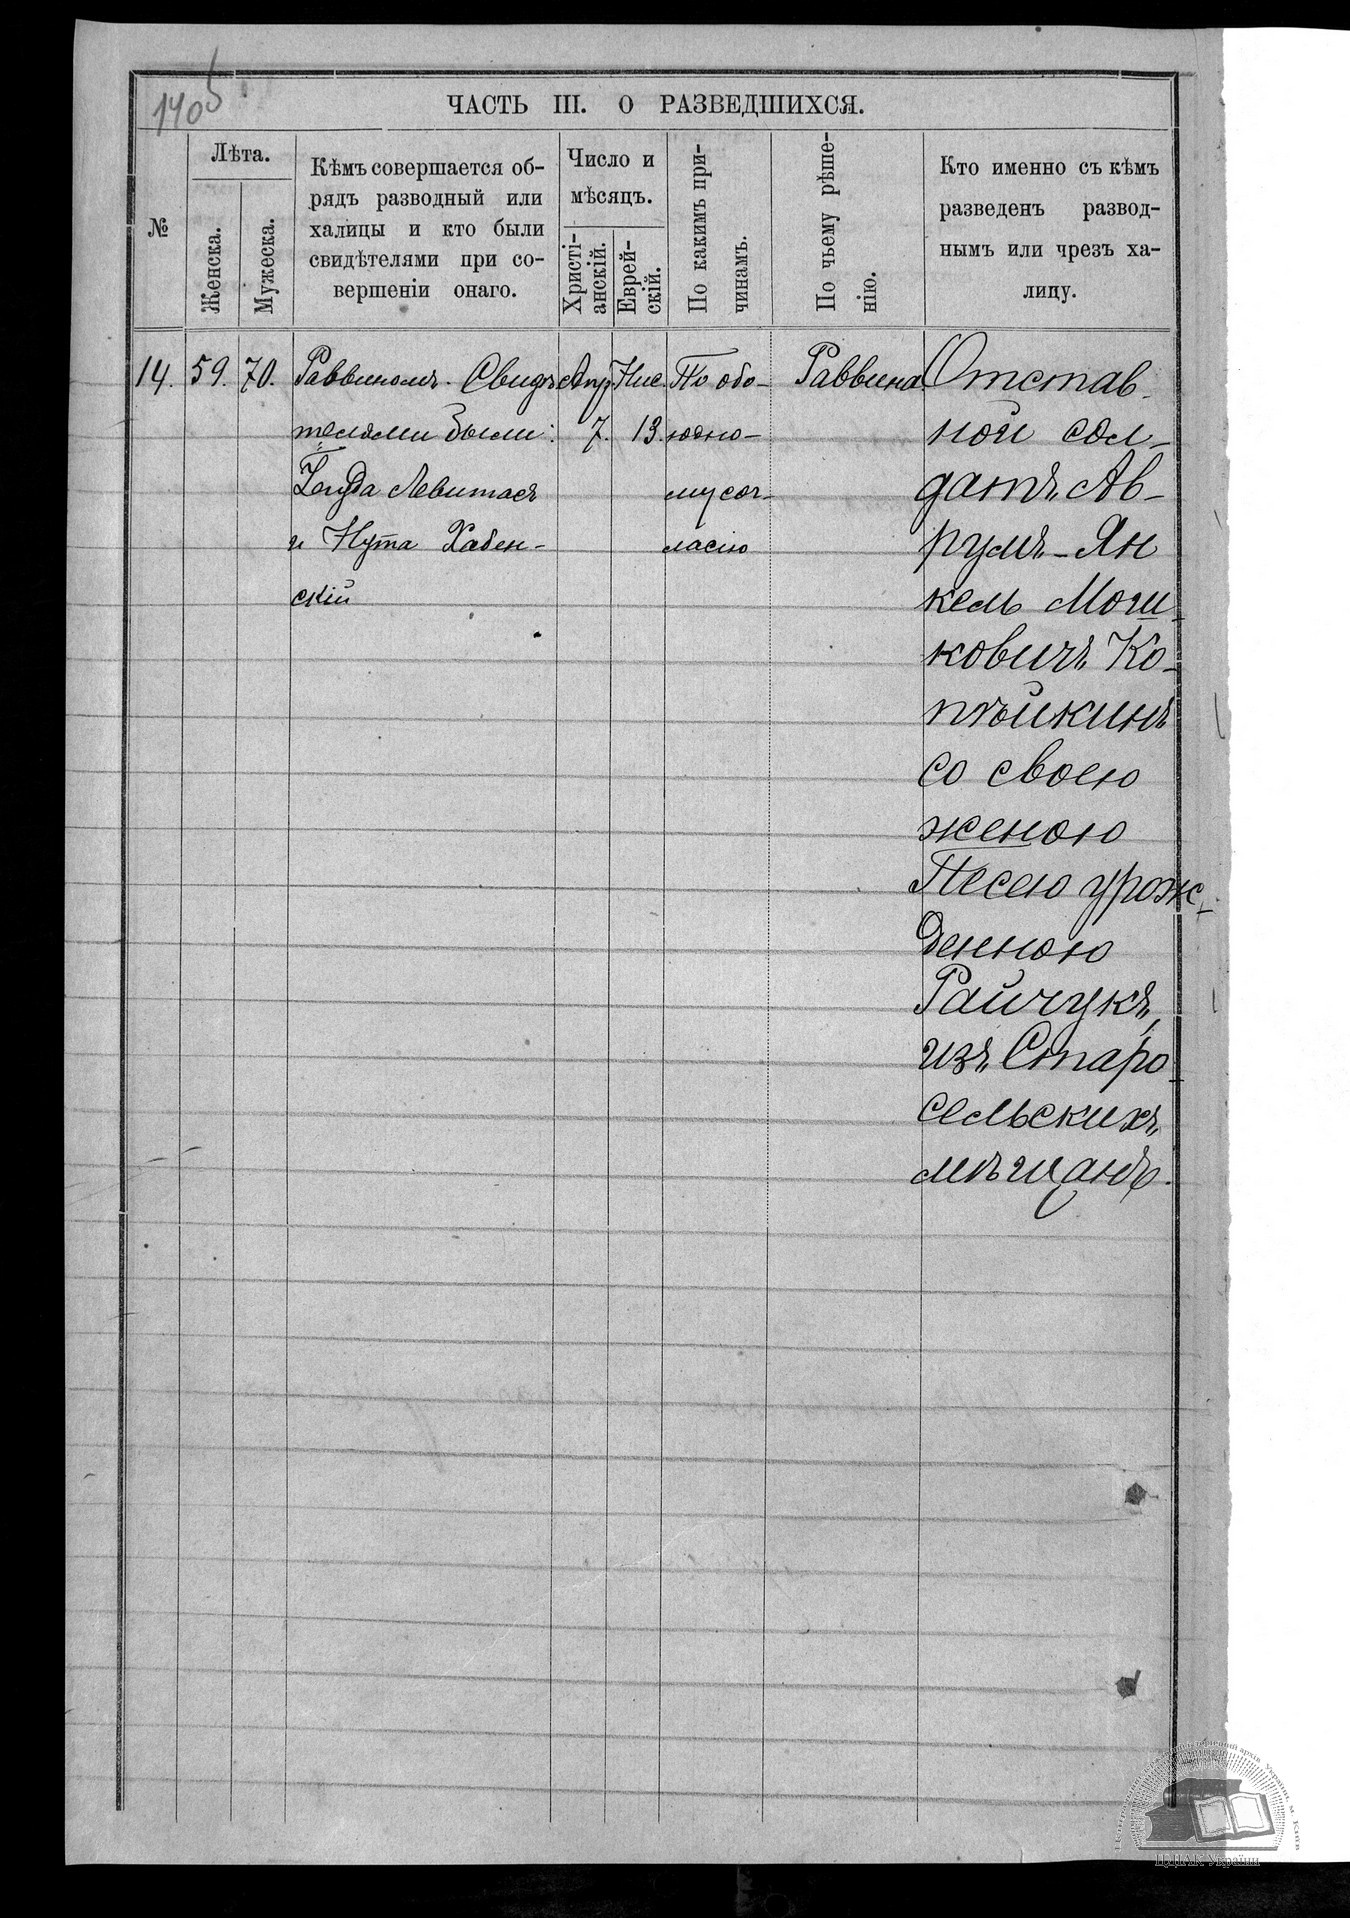 1405
ЧАСТЬ III. О РАЗВЕДШИХСЯ.
№
Лѣта.
Женска.
Мужеска.
Кѣмъ совершается об-
рядъ разводный или
халицы и кто были
свидѣтелями при со-
вершеніи онаго.
Число и
мѣсяцъ.
Христі-
анскій.
Еврей-
скій.
По какимъ при-
чинамъ.
По чьему рѣше-
нію.
Кто именно съ кѣмъ
разведенъ развод-
нымъ или чрезъ ха-
лицу.
14.
59.
70.
Раввиномъ. Свидѣ
телями были:
Іегуда Левитасъ
и Нута Хабен-
скій
Апр.
7.
Нис.
13.
По обо-
юдно-
му сог-
ласію
Раввина.
Отстав-
ной сол-
датъ Ав-
румъ-Ян
кель Мош-
ковичъ Ко-
пѣйкинъ
со своею
женою
Песею урож-
денною
Райчукъ,
изъ Старо-
сельскихъ
мѣщанъ.
ЦДІАК України